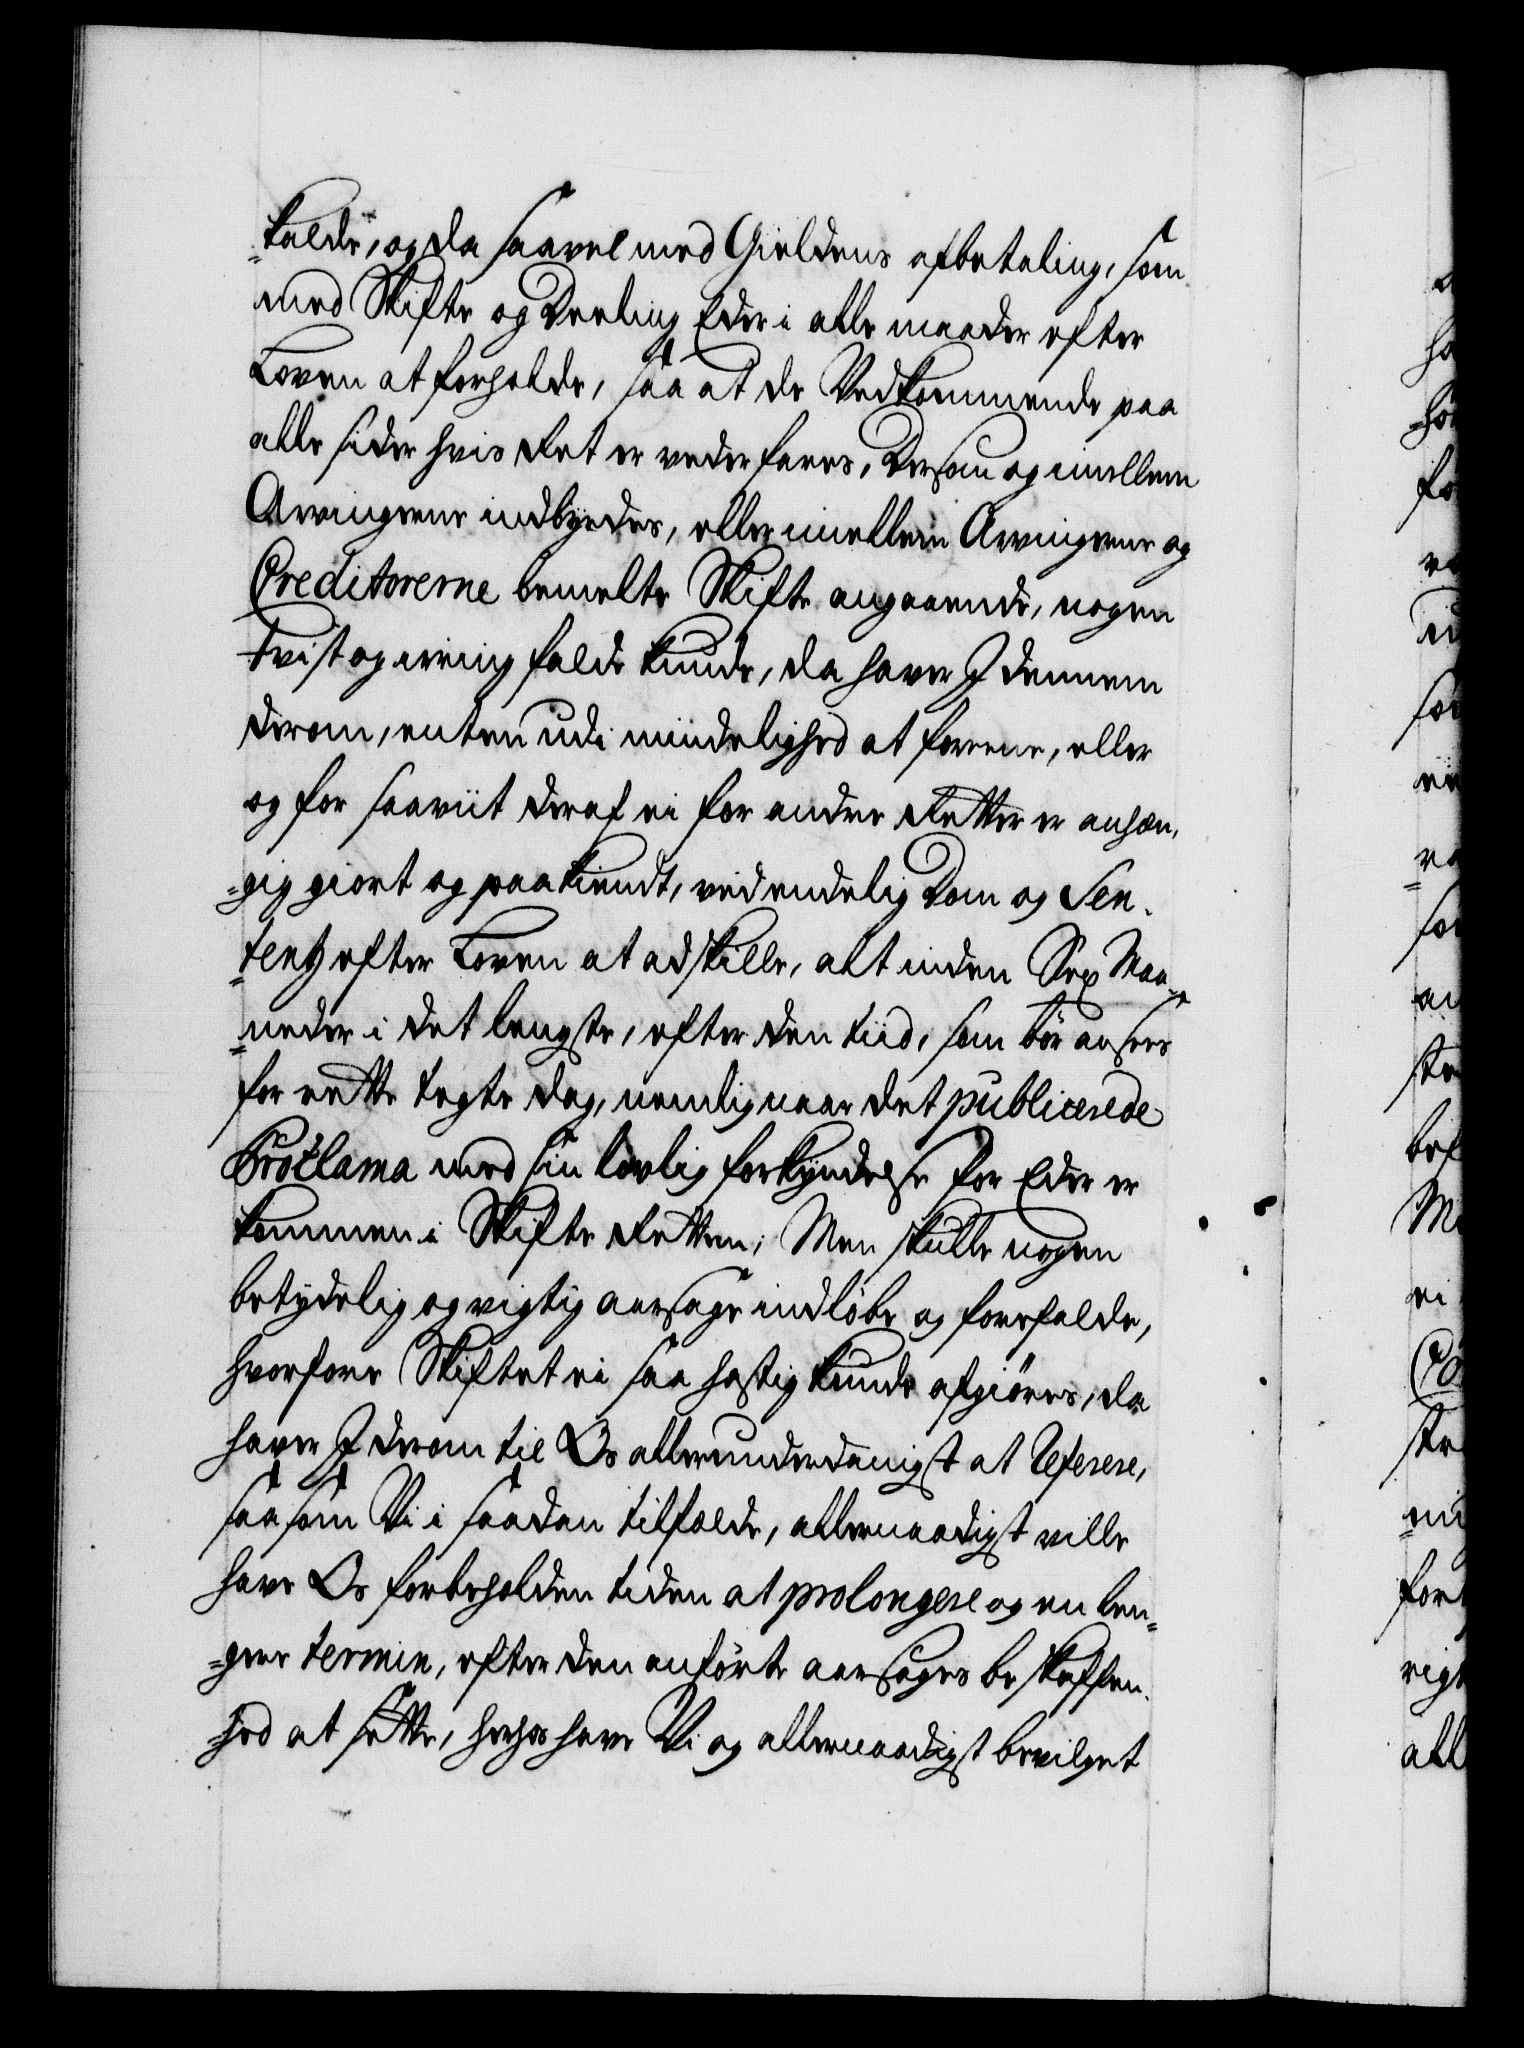 =kalde, og da saavel med Gieldens afbetaling, som
med Skifte og Deeling Eder i alle maader efter
Loven at forholde, saa at de Vedkommende paa
alle sider hvis Ret er vederfares, Dersom og imellem
Arvingerne indbyrdes, eller imellem Arvingerne og
Creditorerne bemelte Skifte angaaende, nogen
tvist og irring falde kunde, da haver I dennem
derom, enten udi mindelighed at foreene, eller
og for saaviit deraf ei for andre Retter er anhæn,
=gig giort og paakiendt, ved endelig Dom og Sen,
=tentz efter Loven at adskille, alt inden Sex Maa,
=neder i det lengste, efter den tiid, som bör ansees
for rette tegte dag, nemlig naar det publicerede
Proclama med sin lovlig forkyndelse for Eder er
kommen i Skifte Retten; Men skulle nogen
betydelig og vigtig aarsage indlöbe og forefalde,
hvorfore Skiftet ei saa hastig kunde afgiöres, da
haver I derom til Os allerunderdanigst at Referere,
saasom Vi i saadan tilfælde, allernaadigst ville
have Os forbeholden tiden at prolongere og en len,
=gere termin, efter den anförte aarsages beskaffen,
=hed at sette, herhos have Vi og allernaadigst bevilget